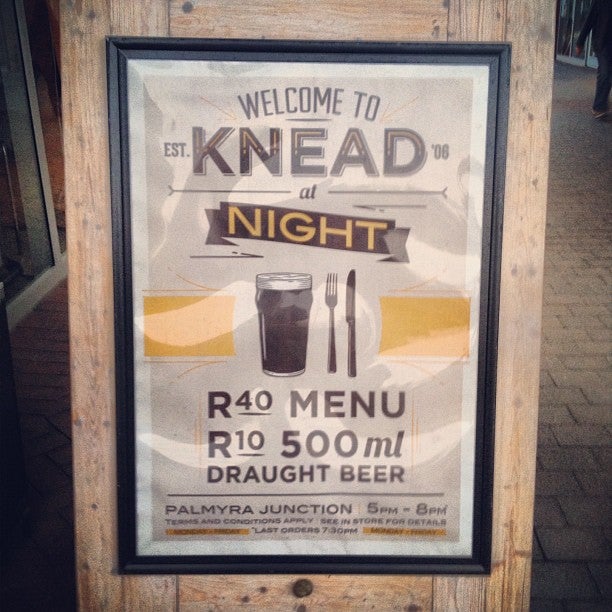 WELCOME TO
EST. KNEAD '06
at
NIGHT
R40 MENU
R10 500ml
DRAUGHT BEER
PALMYRA JUNCTION | 5PM - 8PM
TERMS AND CONDITIONS APPLY | SEE IN STORE FOR DETAILS
MONDAY - FRIDAY *LAST ORDERS 7:30PM MONDAY - FRIDAY